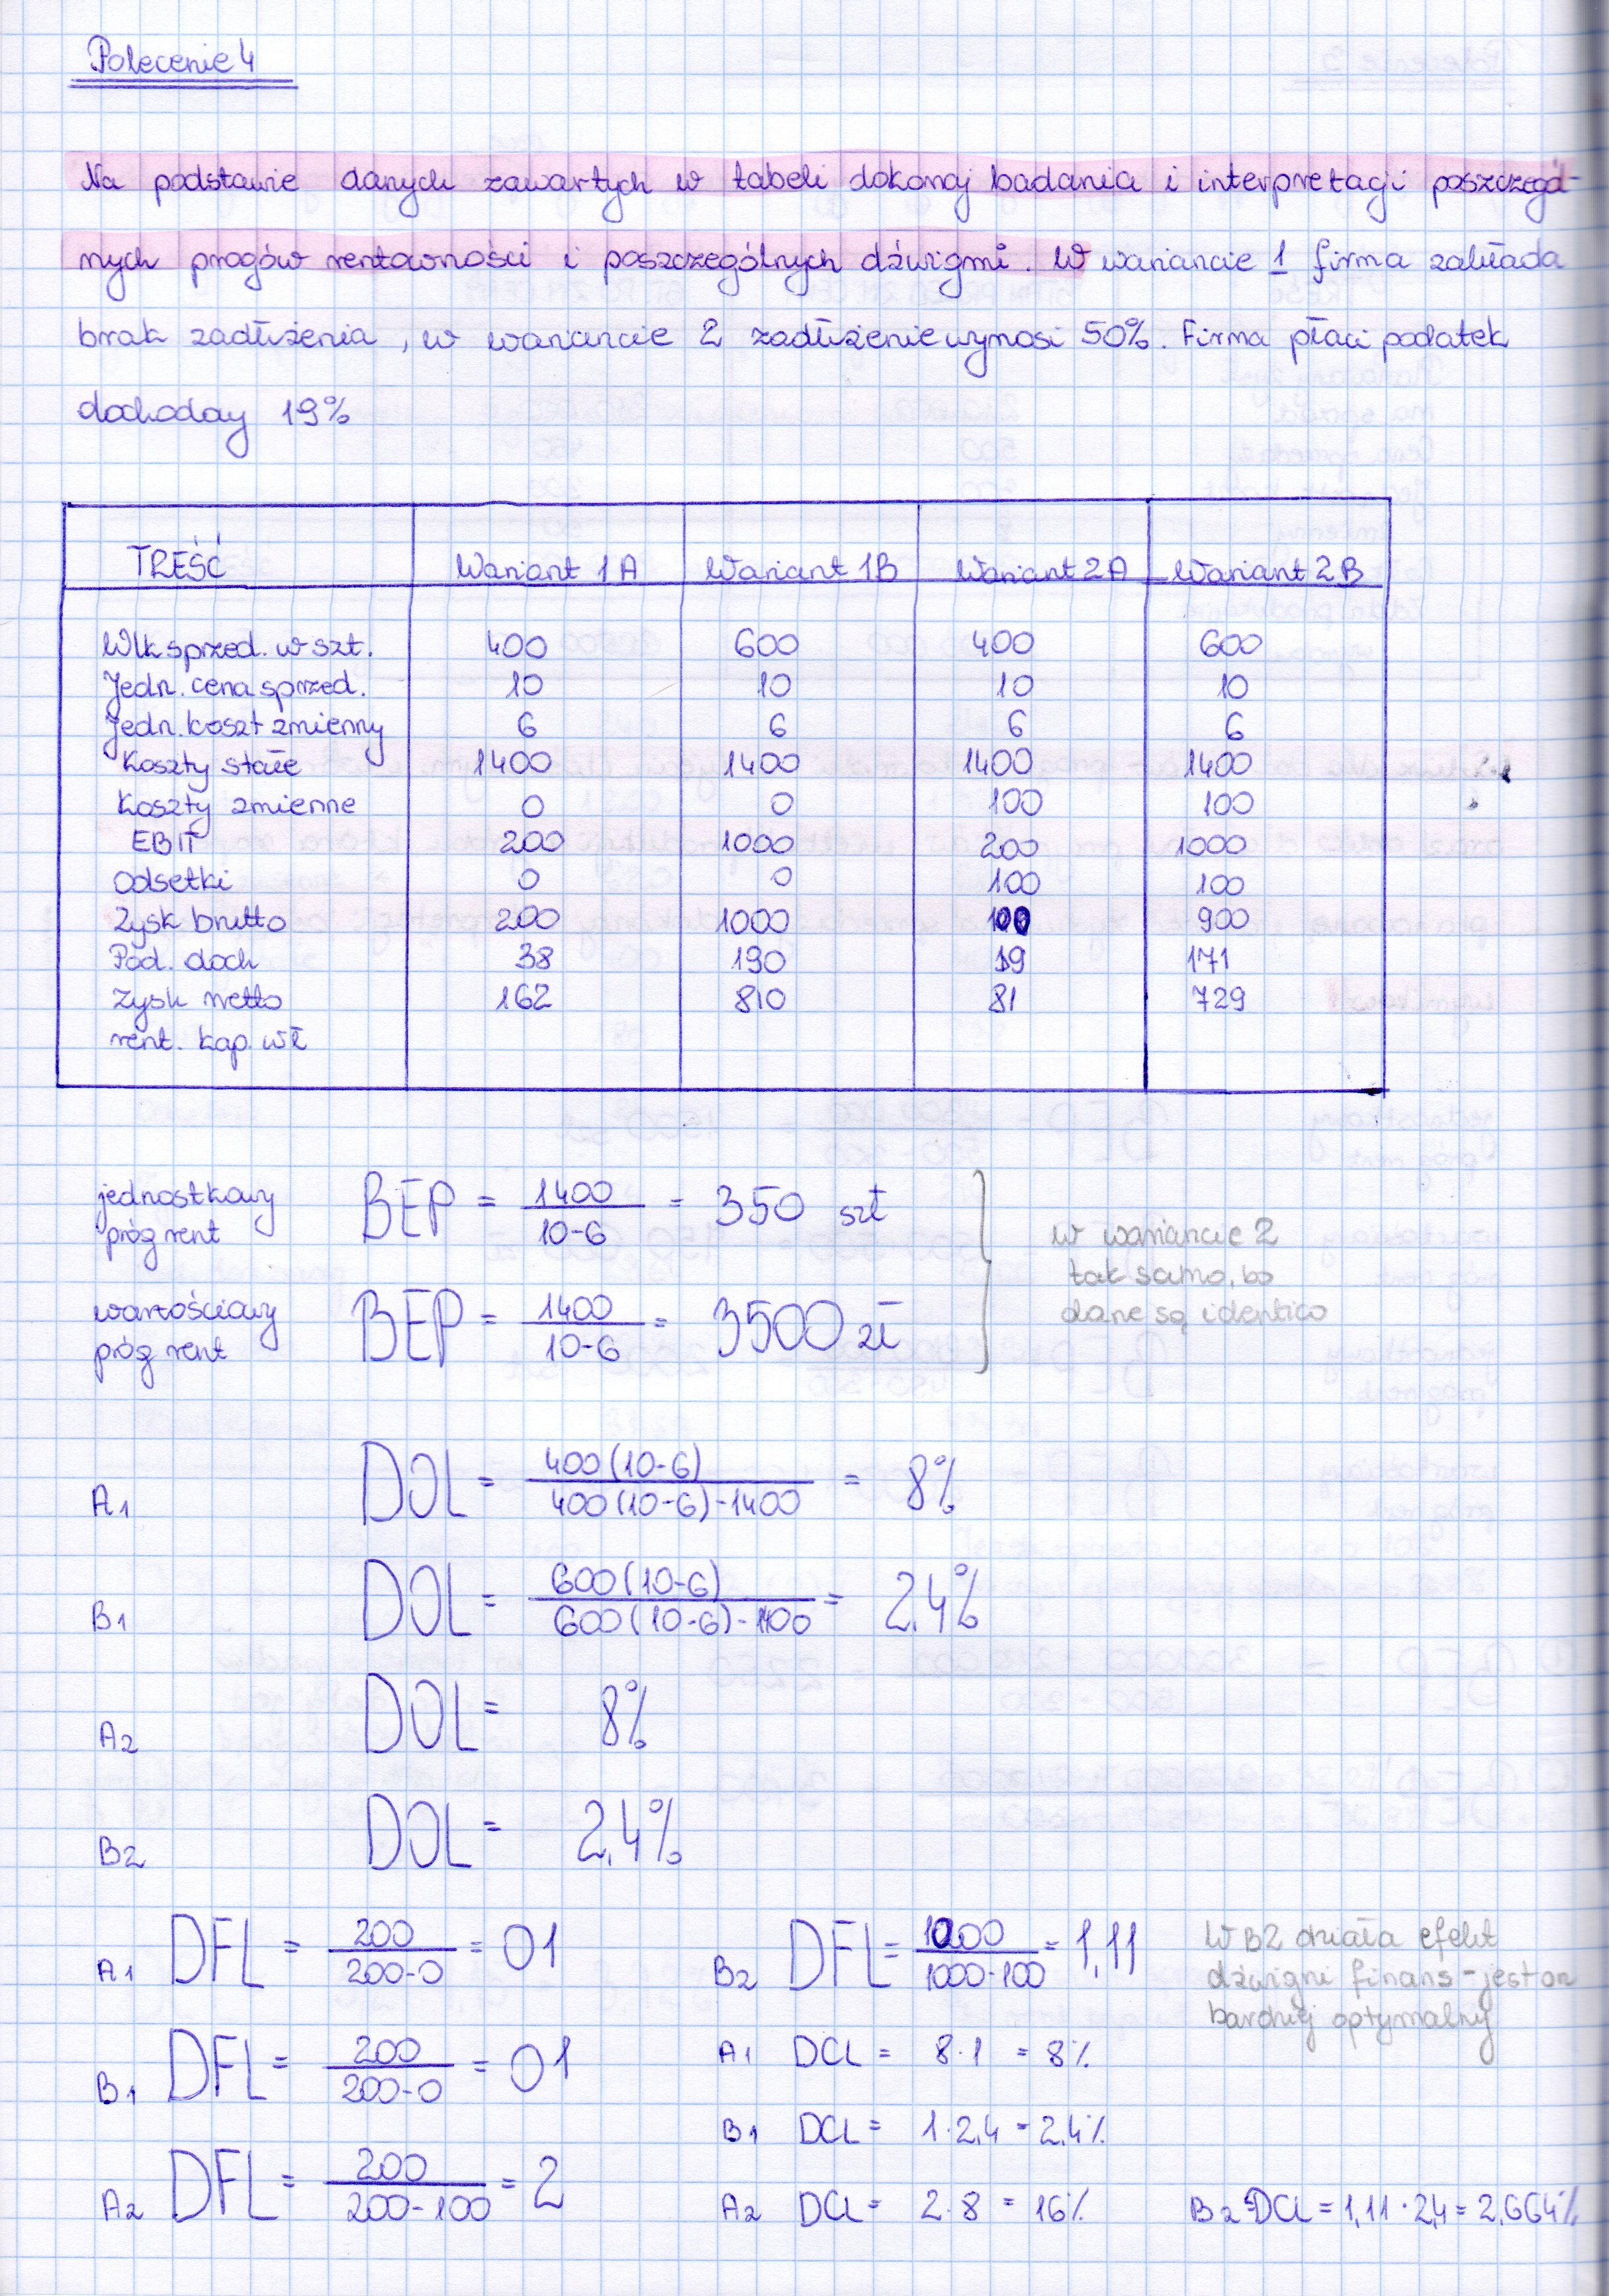 Polecenie 4
Na podstawie danych zawartych w tabeli dokonaj badania i interpretacji poszczegól-
nych progów rentowności i poszczególnych dźwigni. W wariancie 1 firma zakłada
brak zadłużenia, w wariancie 2 zadłużenie wynosi 50%. Firma płaci podatek
dochodowy 19%
TREŚĆ Wariant 1A Wariant 1B Wariant 2A Wariant 2B
Wlk sprzed. w szt. 400 600 400 600
Jedn. cena sprzed. 10 10 10 10
Jedn. koszt zmienny 6 6 6 6
Koszty stałe 1400 1400 1400 1400
Koszty zmienne 0 0 100 100
EBIT 200 1000 200 1000
Odsetki 0 0 100 100
Zysk brutto 200 1000 100 900
Pod. doch 38 190 19 171
Zysk netto 162 810 81 729
rent. kap. wł
jednostkowy próg rent BEP = 1400 / 10-6 = 350 szt
wartościowy próg rent BEP = 1400 / 10-6 = 3500 zł
w wariancie 2
tak samo, bo
dane są identico
A1 DOL = 400(10-6) / 400(10-6)-1400 = 8%
B1 DOL = 600(10-6) / 600(10-6)-1400 = 2,4%
A2 DOL = 8%
B2 DOL = 2,4%
A1 DFL = 200 / 200-0 = 01
B1 DFL = 200 / 200-0 = 01
A2 DFL = 200 / 200-100 = 2
B2 DFL = 1000 / 1000-100 = 1,11
W B2 działa efekt
dźwigni finans - jest on
bardziej optymalny
A1 DCL = 8·1 = 8%
B1 DCL = 1·2,4 = 2,4%
A2 DCL = 2·8 = 16%
B2 DCL = 1,11·2,4 = 2,664%